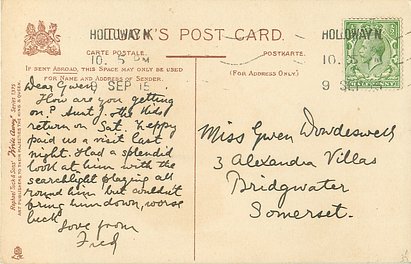 HOLLOWAY N.
TUCK'S POST CARD.
CARTE POSTALE.
POSTKARTE.
IF SENT ABROAD, THIS SPACE MAY ONLY BE USED
FOR NAME AND ADDRESS OF SENDER.
(FOR ADDRESS ONLY)
10. 5 PM
9 SEP 15
HOLLOWAY N
10.
9 SE
Raphael Tuck & Sons' "Write Away"
ART PUBLISHERS TO THEIR MAJESTIES THE KING & QUEEN.
Dear Gwen
How are you getting
on? Aunt J. & the kids
return on Sat. Zeppy
paid us a visit last
night. Had a splendid
look at him with the
searchlight playing all
round him but couldn't
bring him down, worse
luck
Love from
Fred
Miss Gwen Dowdeswell
3 Alexandra Villas
Bridgwater
Somerset.